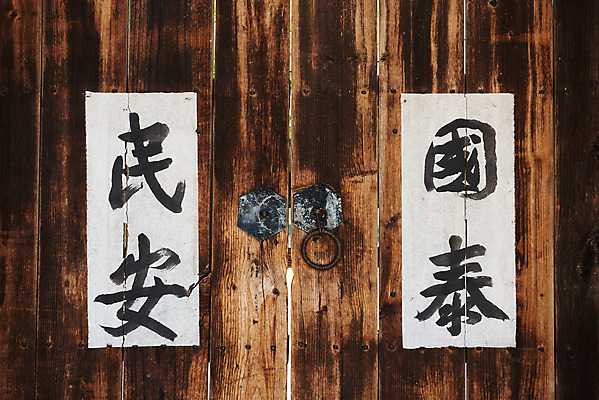 國泰
民安